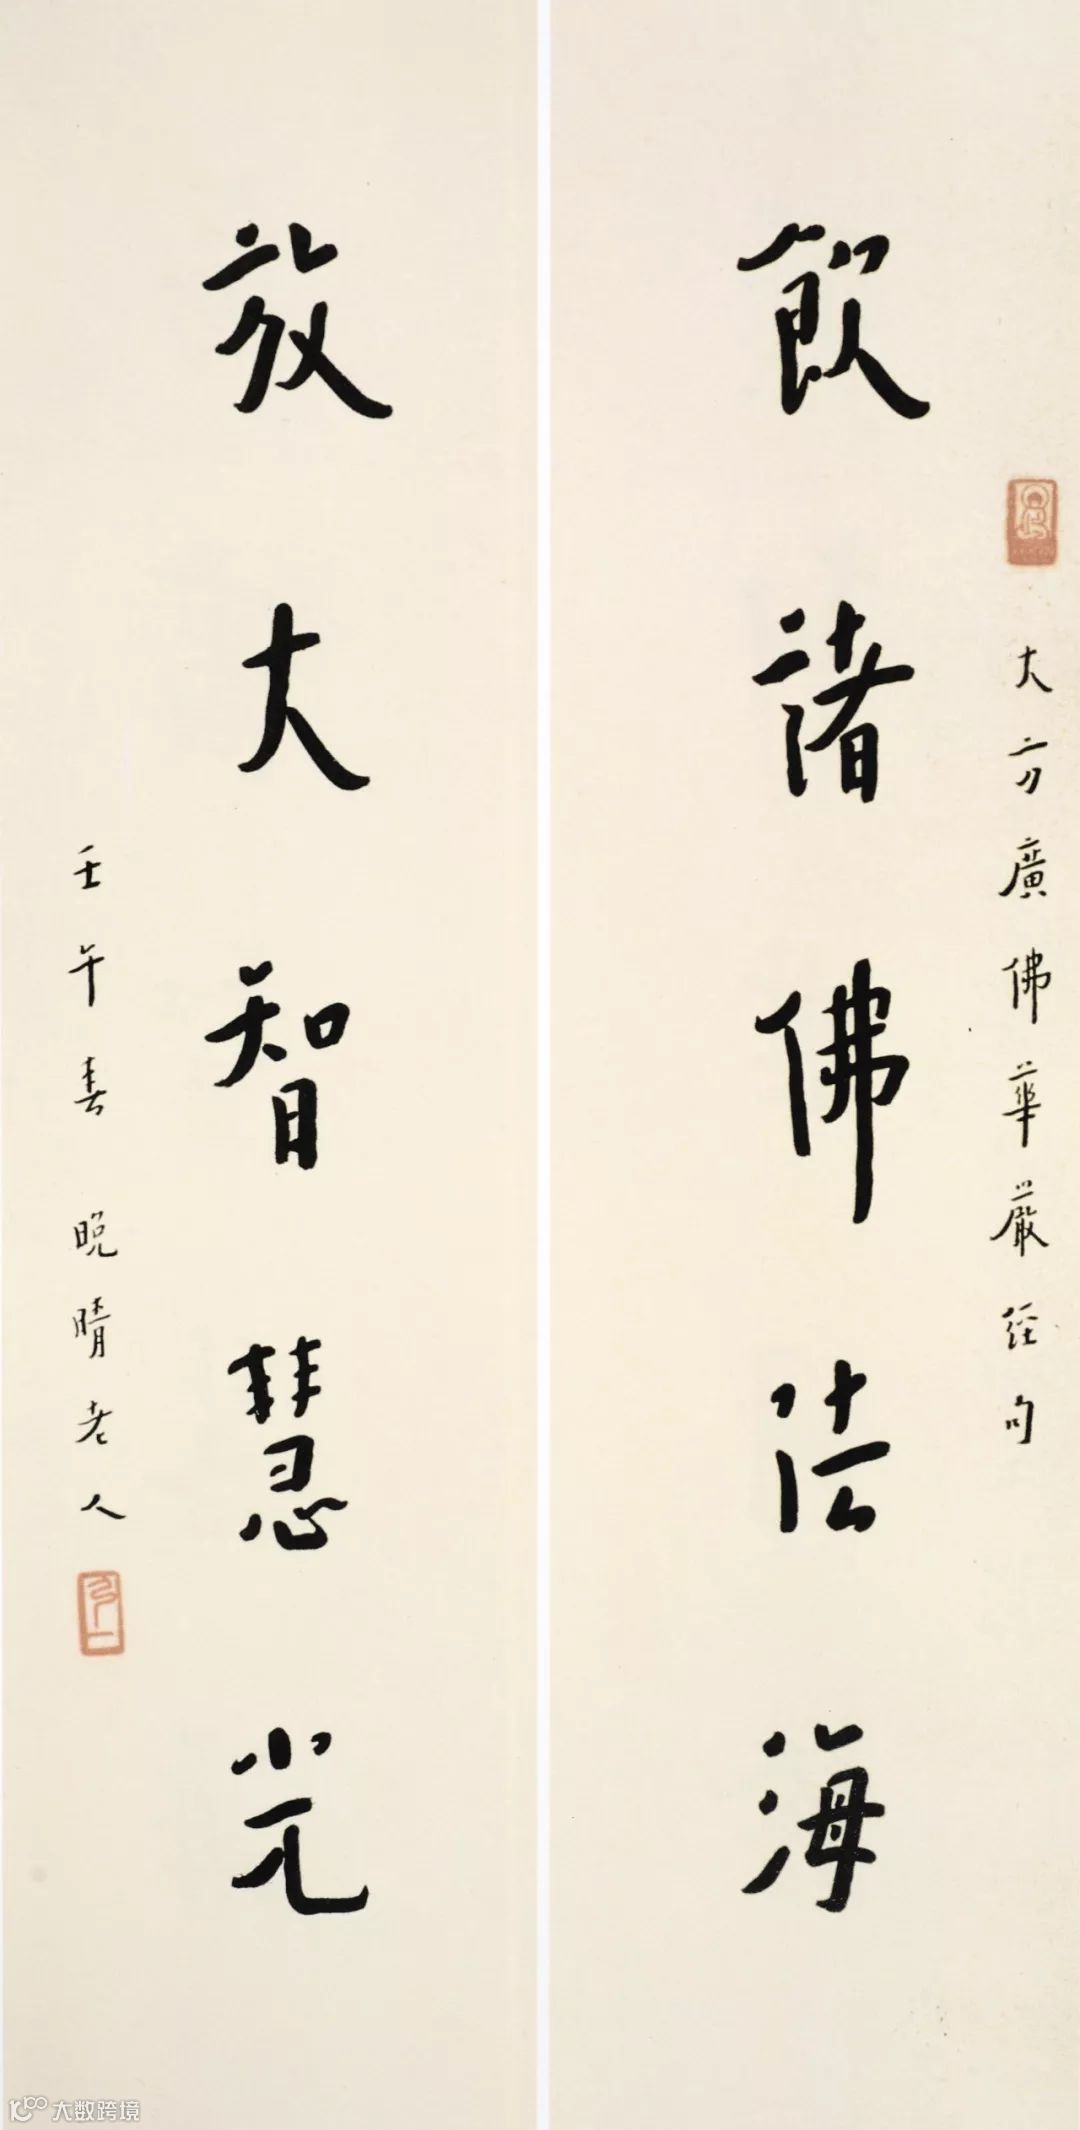 大方廣佛華嚴經句
飲諸佛法海
放大智慧光
壬午春 晚晴老人
弘一
大数跨境